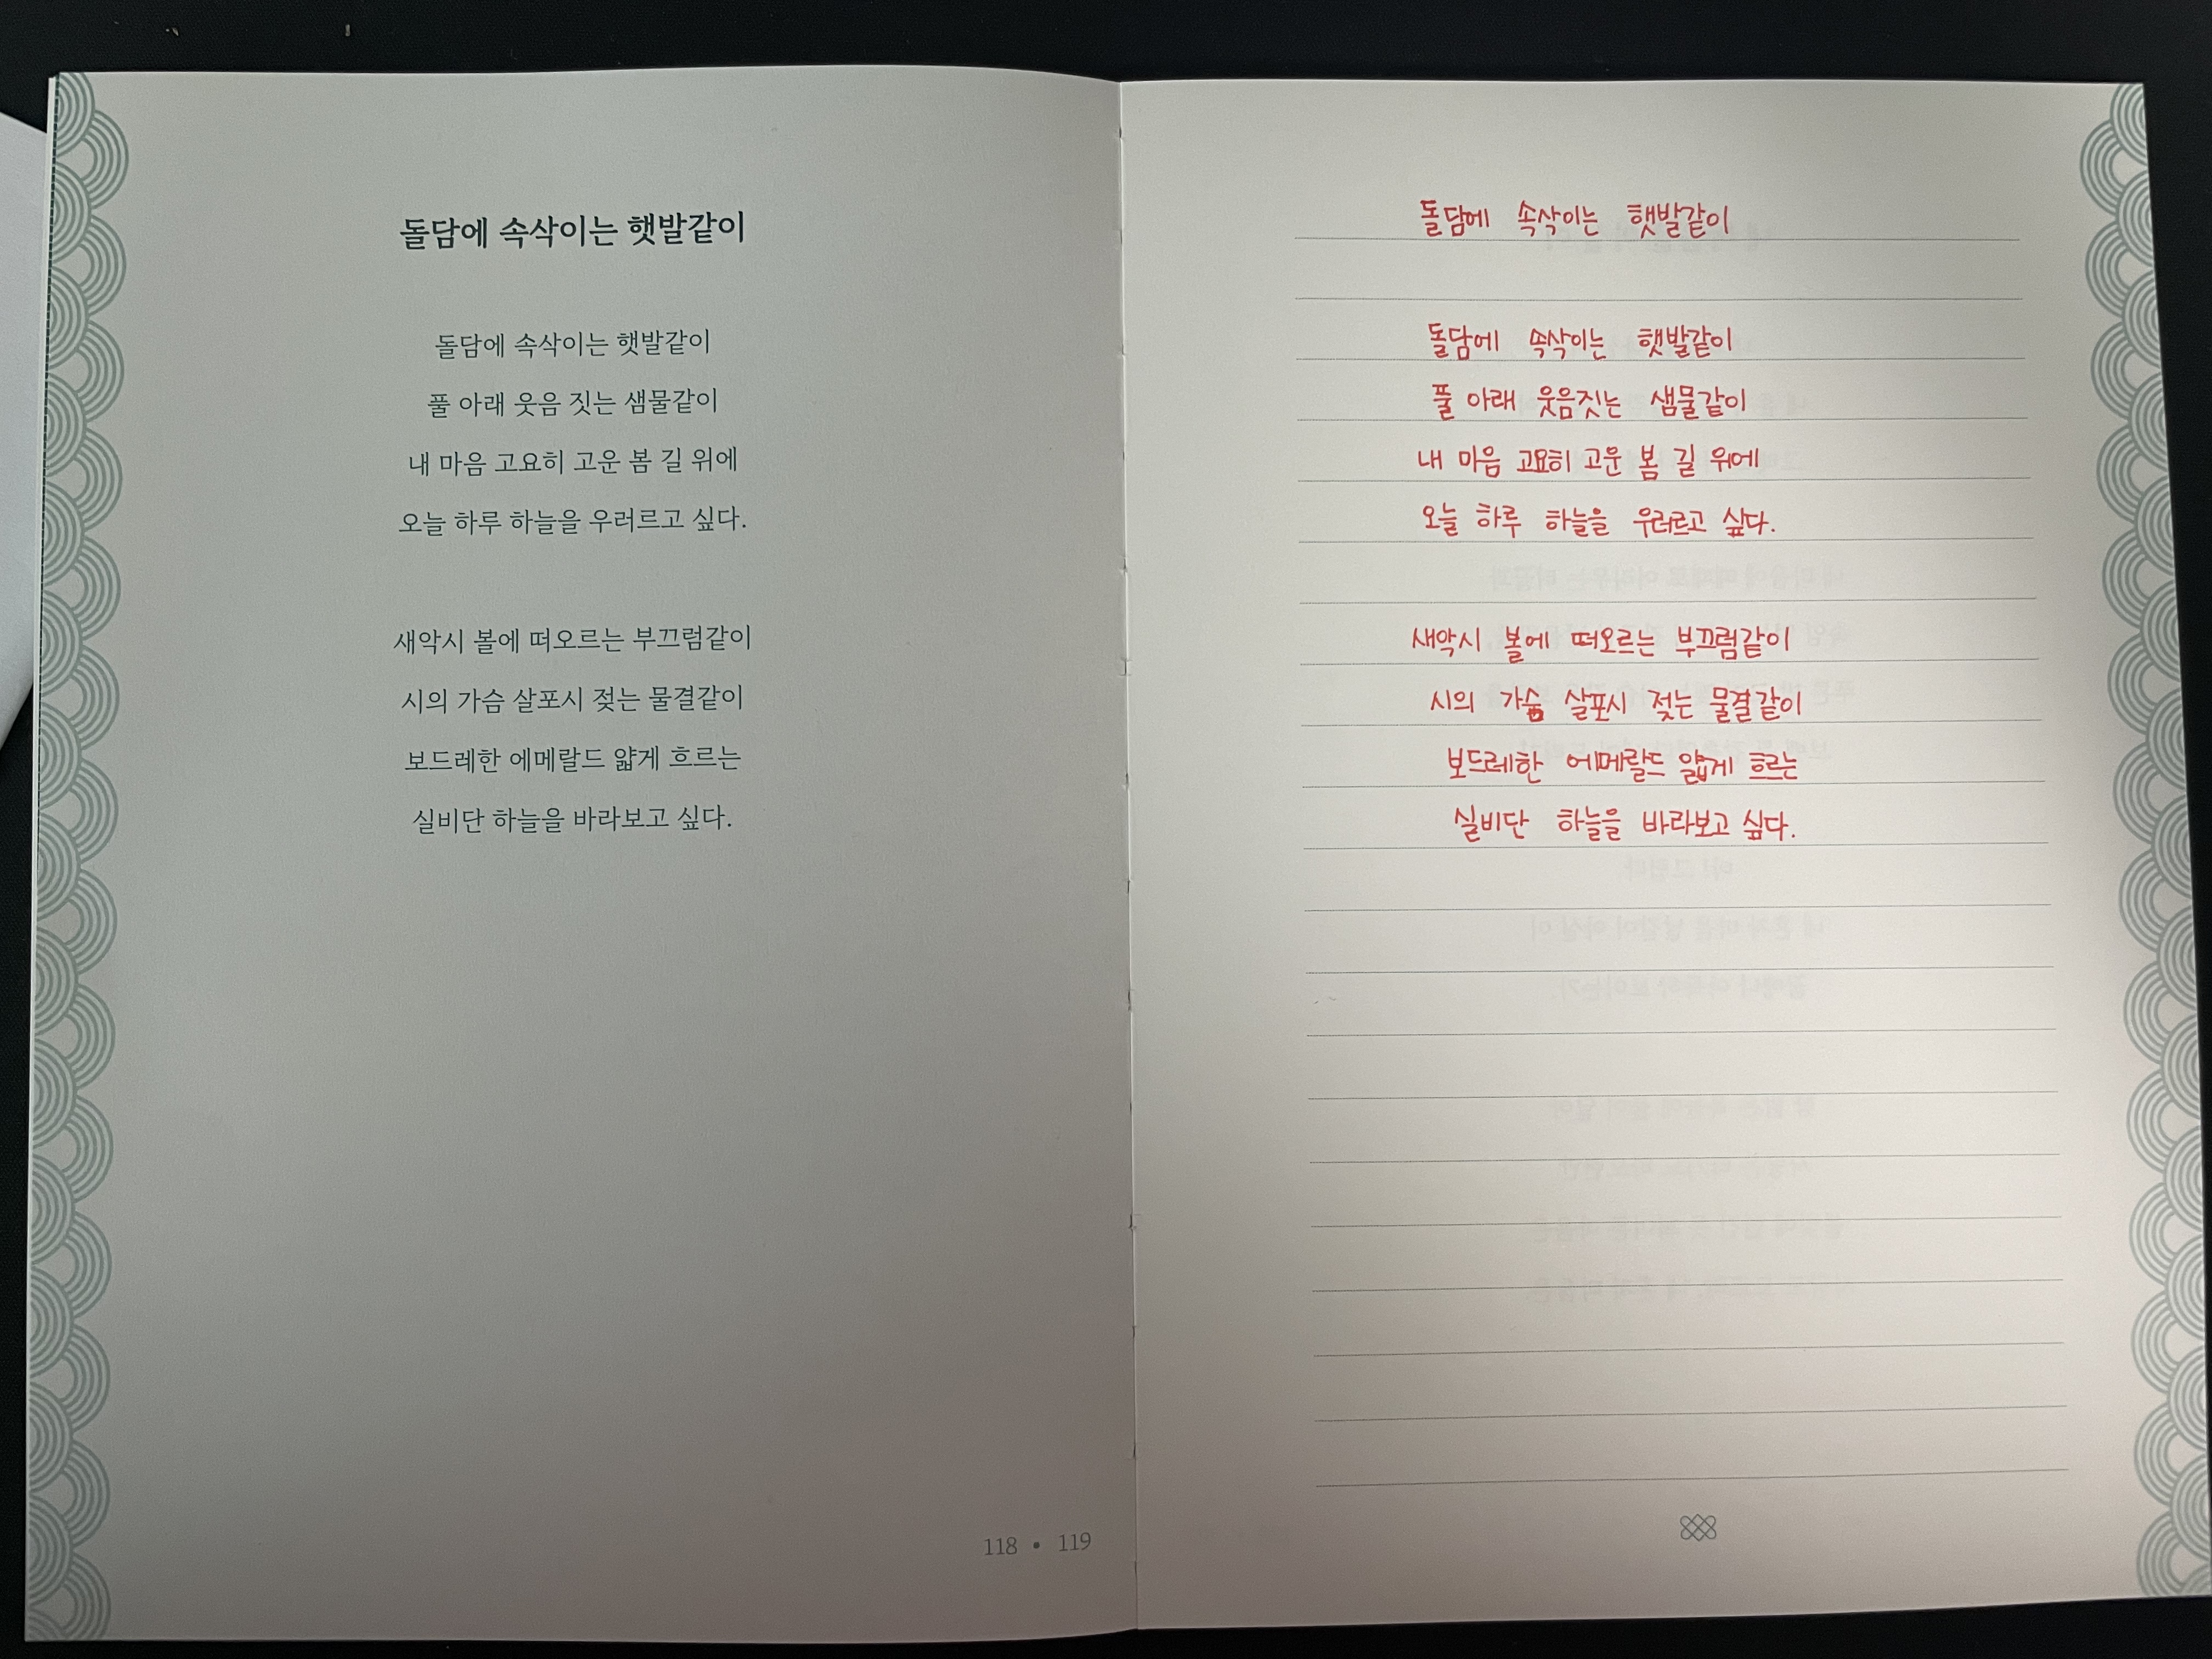 돌담에 속삭이는 햇발같이
돌담에 속삭이는 햇발같이
풀 아래 웃음 짓는 샘물같이
내 마음 고요히 고운 봄 길 위에
오늘 하루 하늘을 우러르고 싶다.
새악시 볼에 떠오르는 부끄럼같이
시의 가슴 살포시 젖는 물결같이
보드레한 에메랄드 얇게 흐르는
실비단 하늘을 바라보고 싶다.
118 • 119
돌담에 속삭이는 햇발같이
돌담에 속삭이는 햇발같이
풀 아래 웃음짓는 샘물같이
내 마음 고요히 고운 봄 길 위에
오늘 하루 하늘을 우러르고 싶다.
새악시 볼에 떠오르는 부끄럼같이
시의 가슴 살포시 젖는 물결같이
보드레한 에메랄드 얇게 흐르는
실비단 하늘을 바라보고 싶다.